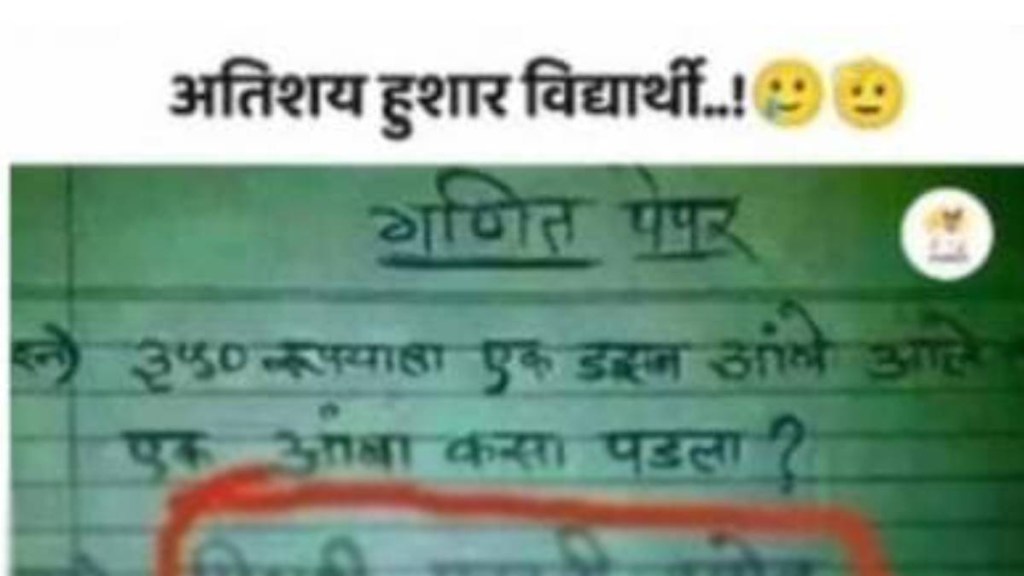 अतिशय हुशार विद्यार्थी..!🥲🫡
गणित पेपर
३५० रूपयाला एक डझन आंबे आले
एक आंबा कसा पडला ?